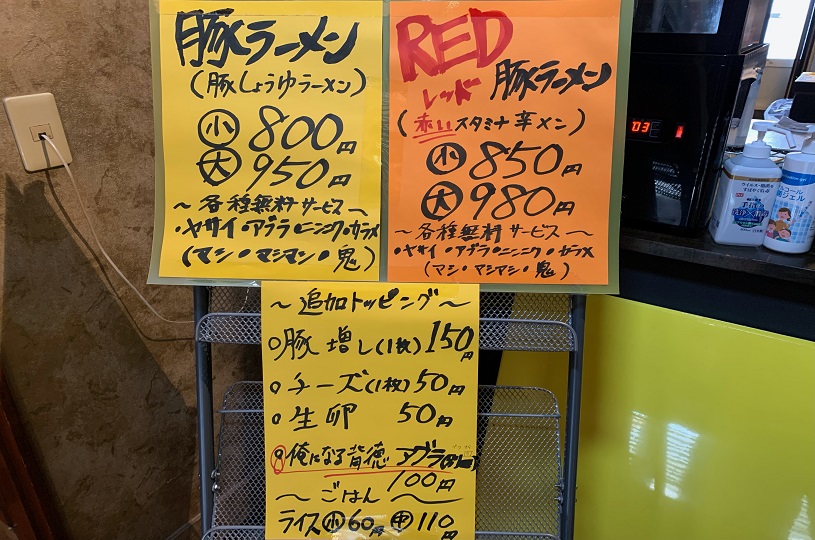 豚ラーメン
(豚しょうゆラーメン)
小 800円
大 950円
～各種無料サービス～
・ヤサイ・アブラ・ニンニク・カラメ
(マシ・マシマシ・鬼)
RED
レッド 豚ラーメン
(赤いスタミナ辛メン)
小 850円
大 980円
～各種無料サービス～
・ヤサイ・アブラ・ニンニク・カラメ
(マシ・マシマシ・鬼)
～追加トッピング～
○豚増し(1枚) 150円
○チーズ(1枚) 50円
○生卵 50円
○俺になる背徳アブラ
100円
～ごはん～
ライス 小 60円 中 110円